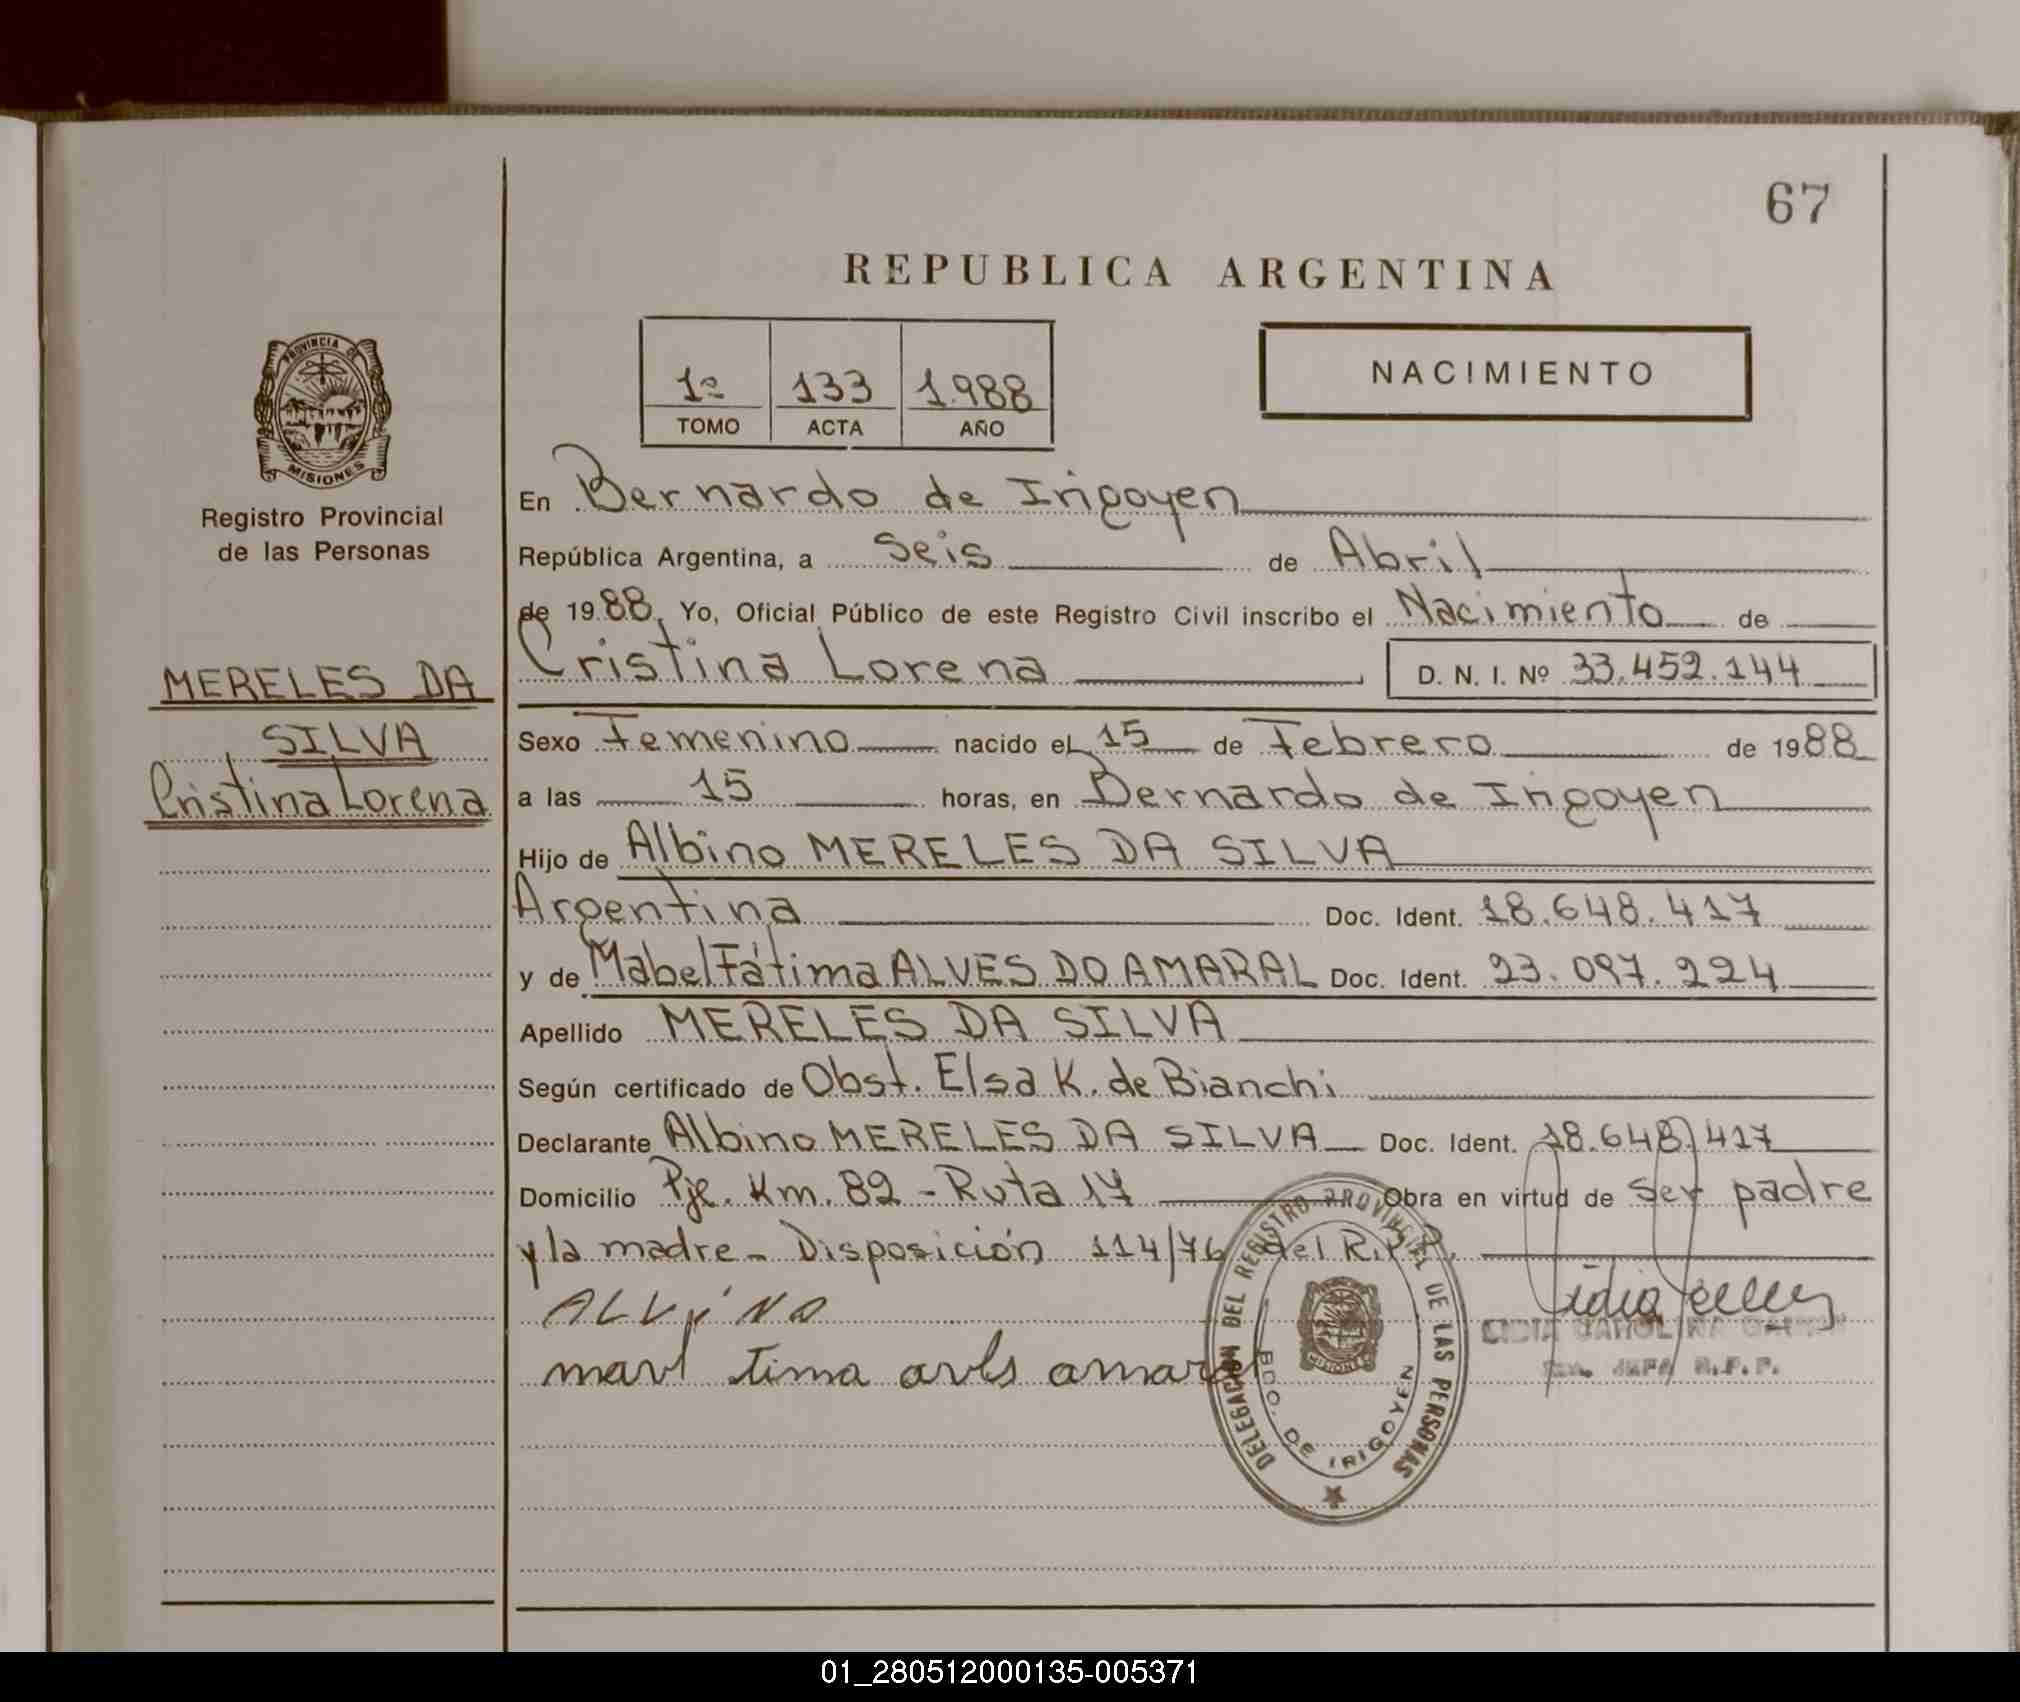 67
REPUBLICA ARGENTINA
1º 133 1.988
TOMO ACTA AÑO
NACIMIENTO
PROVINCIA DE
MISIONES
Registro Provincial
de las Personas
MERELES DA
SILVA
Cristina Lorena
En Bernardo de Irigoyen
República Argentina, a Seis de Abril
de 1988, Yo, Oficial Público de este Registro Civil inscribo el Nacimiento de
Cristina Lorena D. N. I. Nº 33.452.144
Sexo Femenino nacido el 15 de Febrero de 1988
a las 15 horas, en Bernardo de Irigoyen
Hijo de Albino MERELES DA SILVA
Argentina Doc. Ident. 18.648.417
y de Mabel Fátima ALVES DO AMARAL Doc. Ident. 23.097.224
Apellido MERELES DA SILVA
Según certificado de Obst. Elsa K. de Bianchi
Declarante Albino MERELES DA SILVA Doc. Ident. 18.648.417
Domicilio Pje. Km. 82 - Ruta 17 Obra en virtud de ser padre
y la madre - Disposición 114/76 del R.P.P.
ALViNO
marl tima avls amaral
DELEGACION DEL REGISTRO PROVINCIAL DE LAS PERSONAS
BDO. DE IRIGOYEN
MISIONES
LIDIA CAROLINA
JEFA R.P.P.
01_280512000135-005371